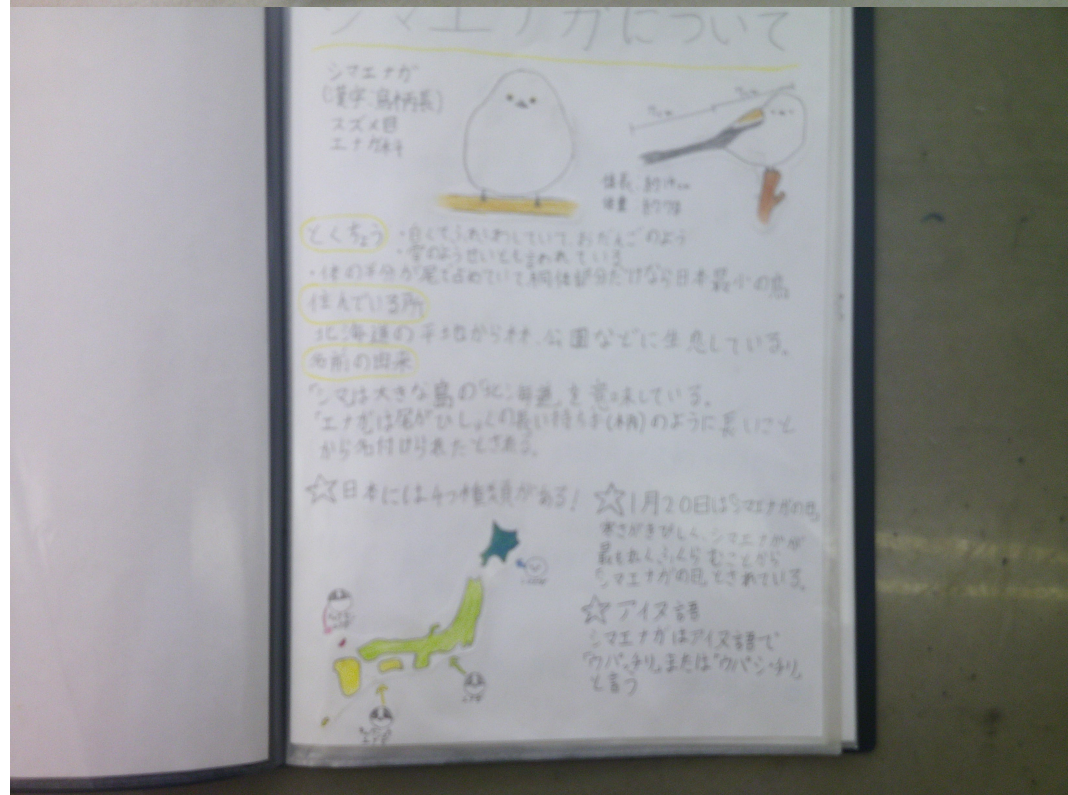 シマエナガについて
シマエナガ
(漢字:島柄長)
スズメ目
エナガ科
7cm 7cm
体長:約14cm
体重:約7g
とくちょう
・白くてふわふわしていて、おだんごのよう
・雪のようせいとも言われている
・体の半分が尾で占めていて、胴体部分だけなら日本最小の鳥
住んでいる所
北海道の平地から林、公園などに生息している。
名前の由来
「シマ」は大きな島の「北海道」を意味している。
「エナガ」は尾がひしゃくの長い持ち手(柄)のように長いこと
から名付けられたとされる。
☆日本には4つ種類がある!
☆1月20日は「シマエナガの日」
寒さがきびしく、シマエナガが
最もまるくふくらむことから
「シマエナガの日」とされている。
☆アイヌ語
シマエナガはアイヌ語で
「ウパシチリ」または「ウパシ・チリ」
と言う